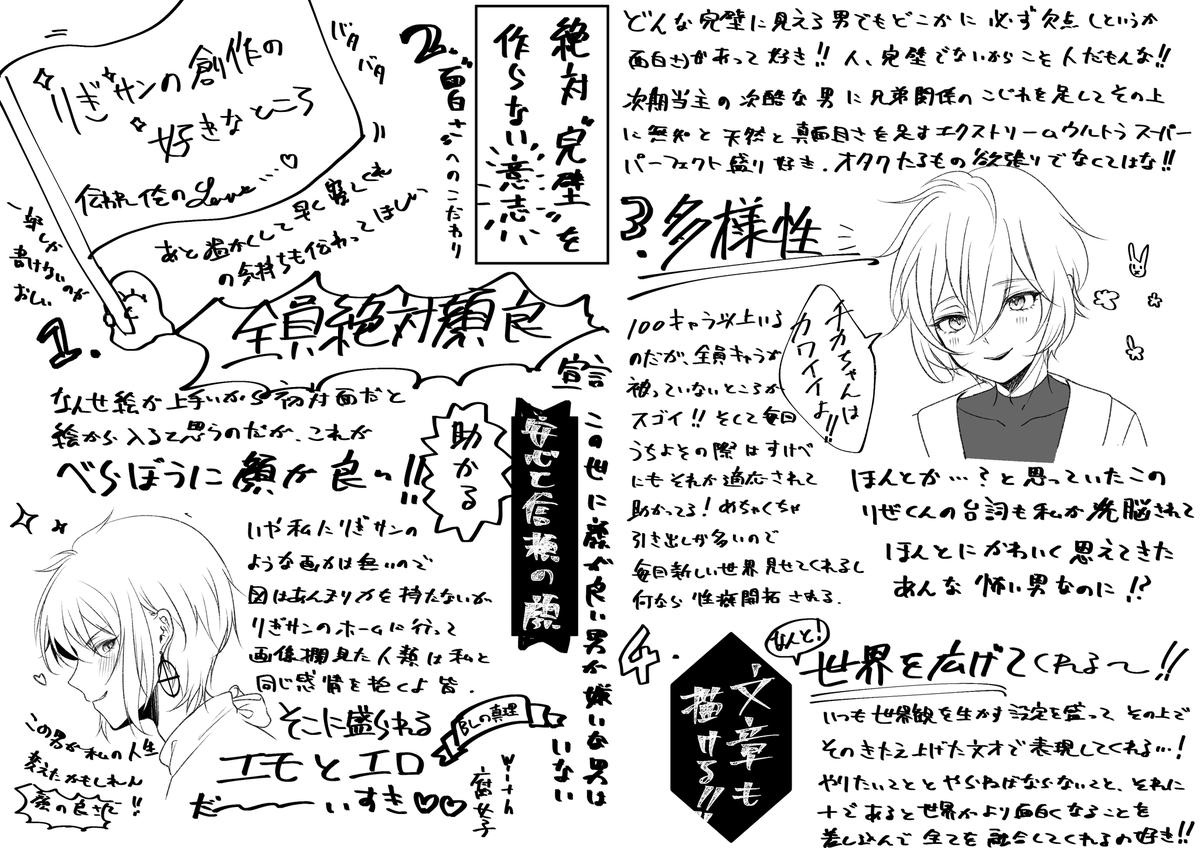 りぎサンの創作の
好きなところ
伝われ俺のLove…♡
バタバタ
あと温かくして早く寝てくれ
の気持ちも伝わってほしい
1.
全員絶対顔良
宣言
なんせ絵が上手いから初対面だと
絵から入ると思うのだが、これが
べらぼうに顔が良い!!
助かる
安心と信頼の顔
この世に顔が良い男が嫌いな男は
いない
いや私たりぎサンの
ような画力は無いので
図はあんまり力を持たないが、
りぎサンのホームに行って
画像欄見た人類は私と
同じ感情を抱くよ皆.
そこに盛られる
エモとエロ
だ〜〜〜いすき♡♡
BLの真理
with
腐女子
この男が私の人生
変えたかもしれん
顔の良さで!!
2.
面白さへのこだわり
絶対"完璧"を
作らない意志
どんな完璧に見える男でもどこかに必ず欠点(というか
面白さ)があって好き!!人、完璧でないからこそ人だもんな!!
次期当主の残酷な男に兄弟関係のこじれを足してその上
に無知と天然と真面目さを足すエクストリームウルトラスーパー
パーフェクト盛り好き.オタクたるもの欲張りでなくてはな!!
3.多様性
100キャラ以上いる
のだが、全員キャラが
被っていないところが
スゴイ!!そして毎日
うちよその際はすけべ
にもそれが適応されて
助かってる!めちゃくちゃ
引き出しが多いので
毎日新しい世界見せてくれるし
何なら性癖開拓される.
チカちゃんは
カワイイよ!!
ほんとか…?と思っていたこの
りぜくんの台詞も私が洗脳されて
ほんとにかわいく思えてきた
あんな怖い男なのに!?
4.
文章も
描ける!!
なんと!
世界を広げてくれる〜!!
いつも世界観を生かす設定を盛って その上で
そのきたえ上げた文才で表現してくれる…!
やりたいこととやらねばならないこと、それに
+であると世界がより面白くなることを
差し込んで全てを融合してくれるの好き!!